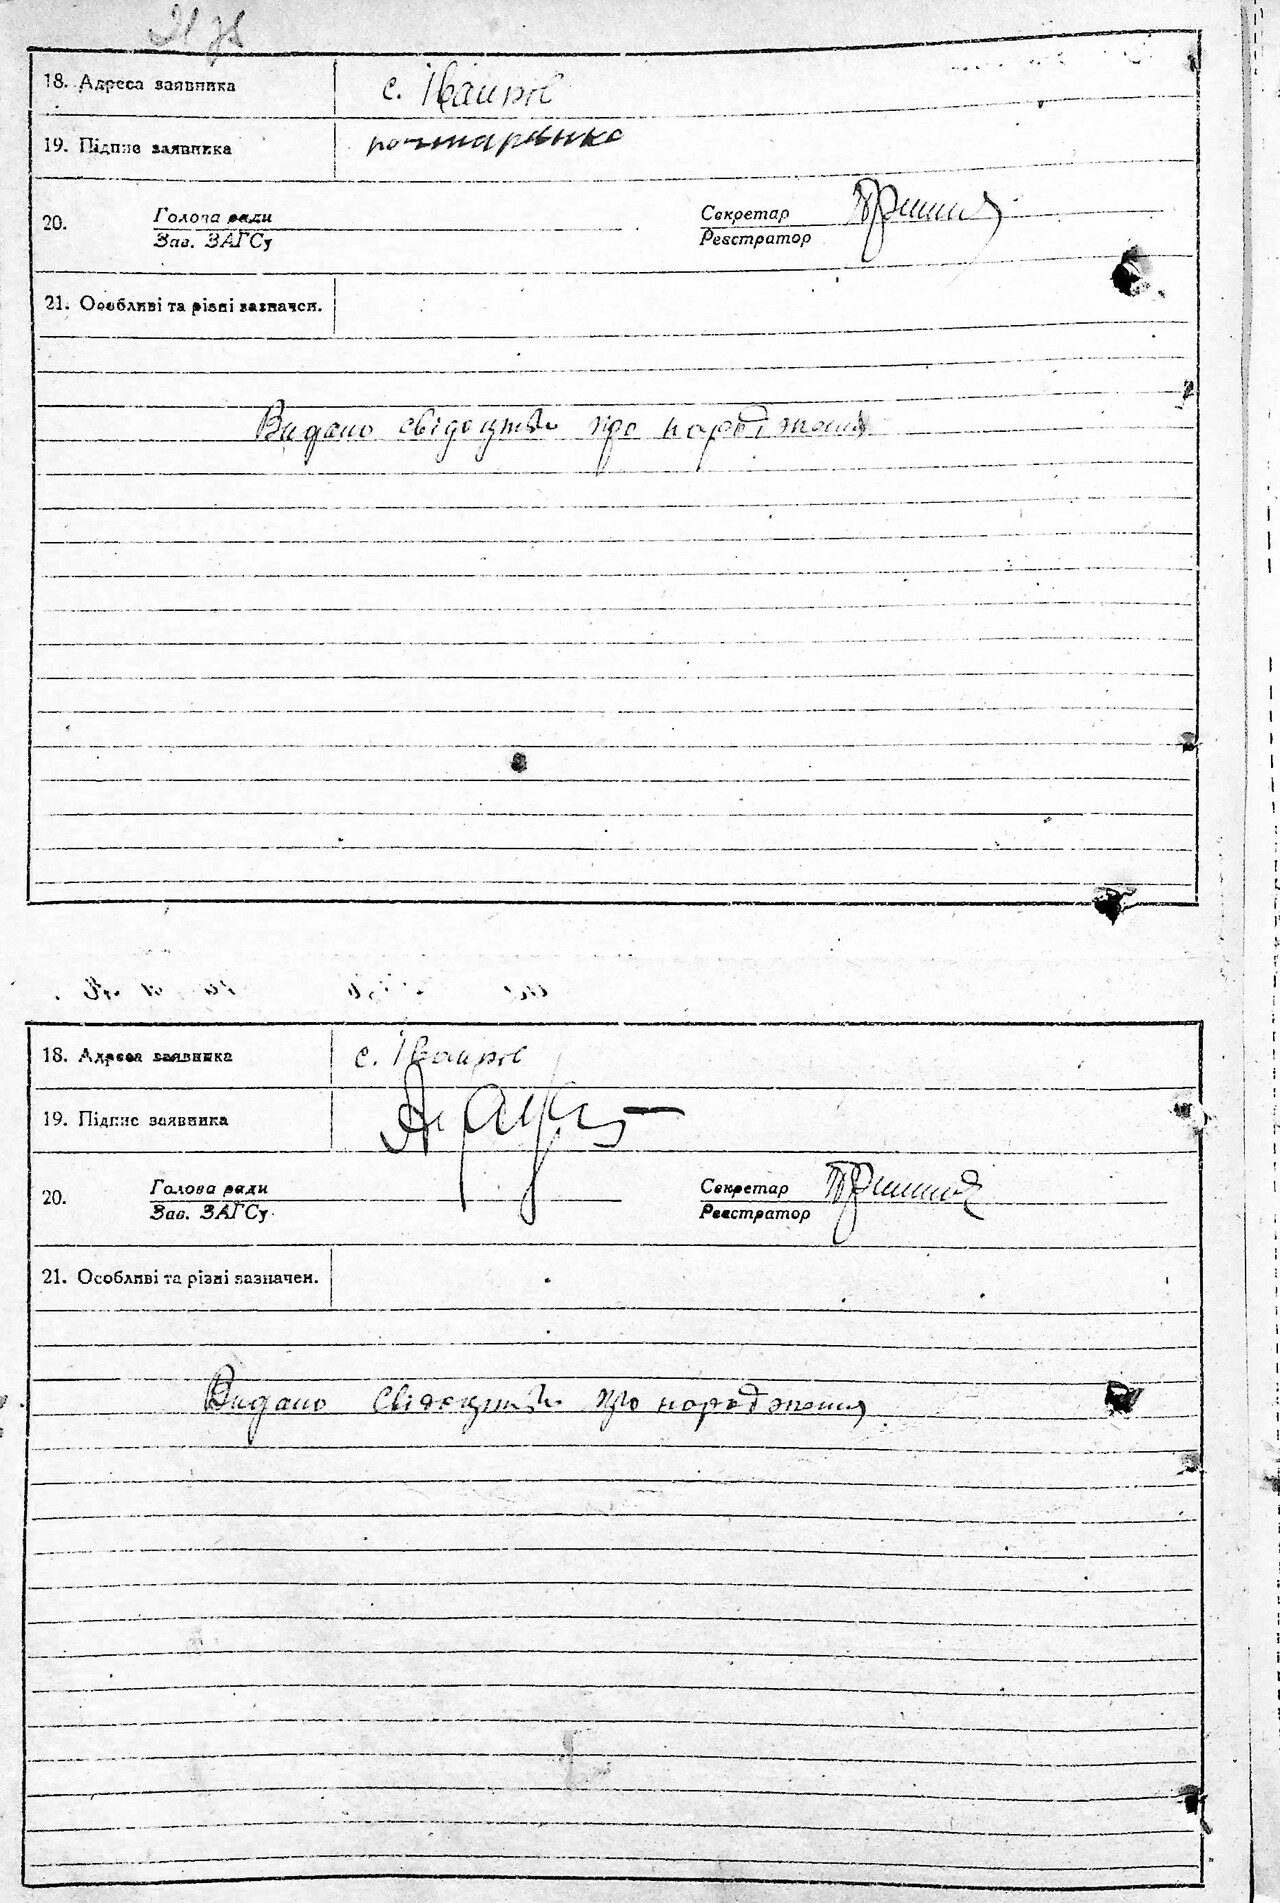 18. Адреса заявника с. Іванків
19. Підпис заявника почтаренко
20. Голова ради Секретар
Зав. ЗАГСу Реєстратор
21. Особливі та різні зазначен.
Видано свідоцтво про народження
18. Адреса заявника с. Іванків
19. Підпис заявника
20. Голова ради Секретар
Зав. ЗАГСу Реєстратор
21. Особливі та різні зазначен.
Видано свідоцтво про народження